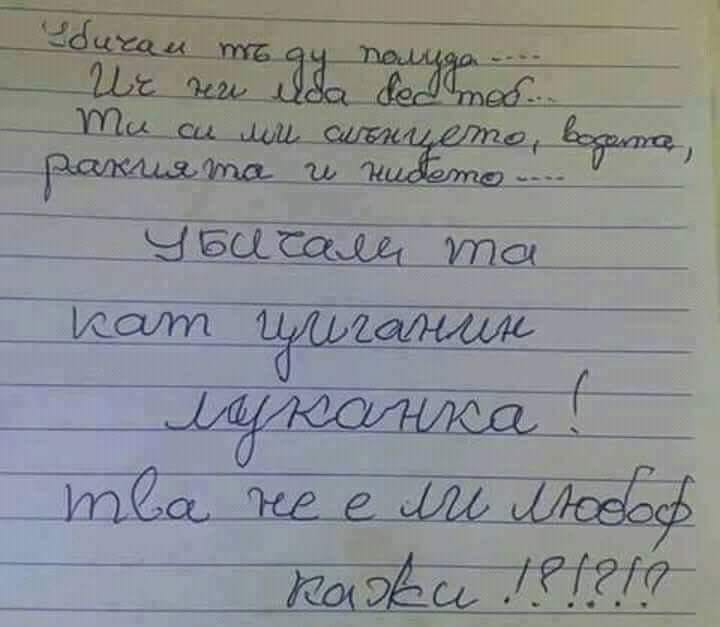 Убичам тъ ду полуда ....
Ич ни мoа бес теб...
Ти си ми слънцето, водата,
ракията и нибето ....
УБИЧАМ та
кат циганин
луканка!
тва не е ли любоф
кажи !?!?!?